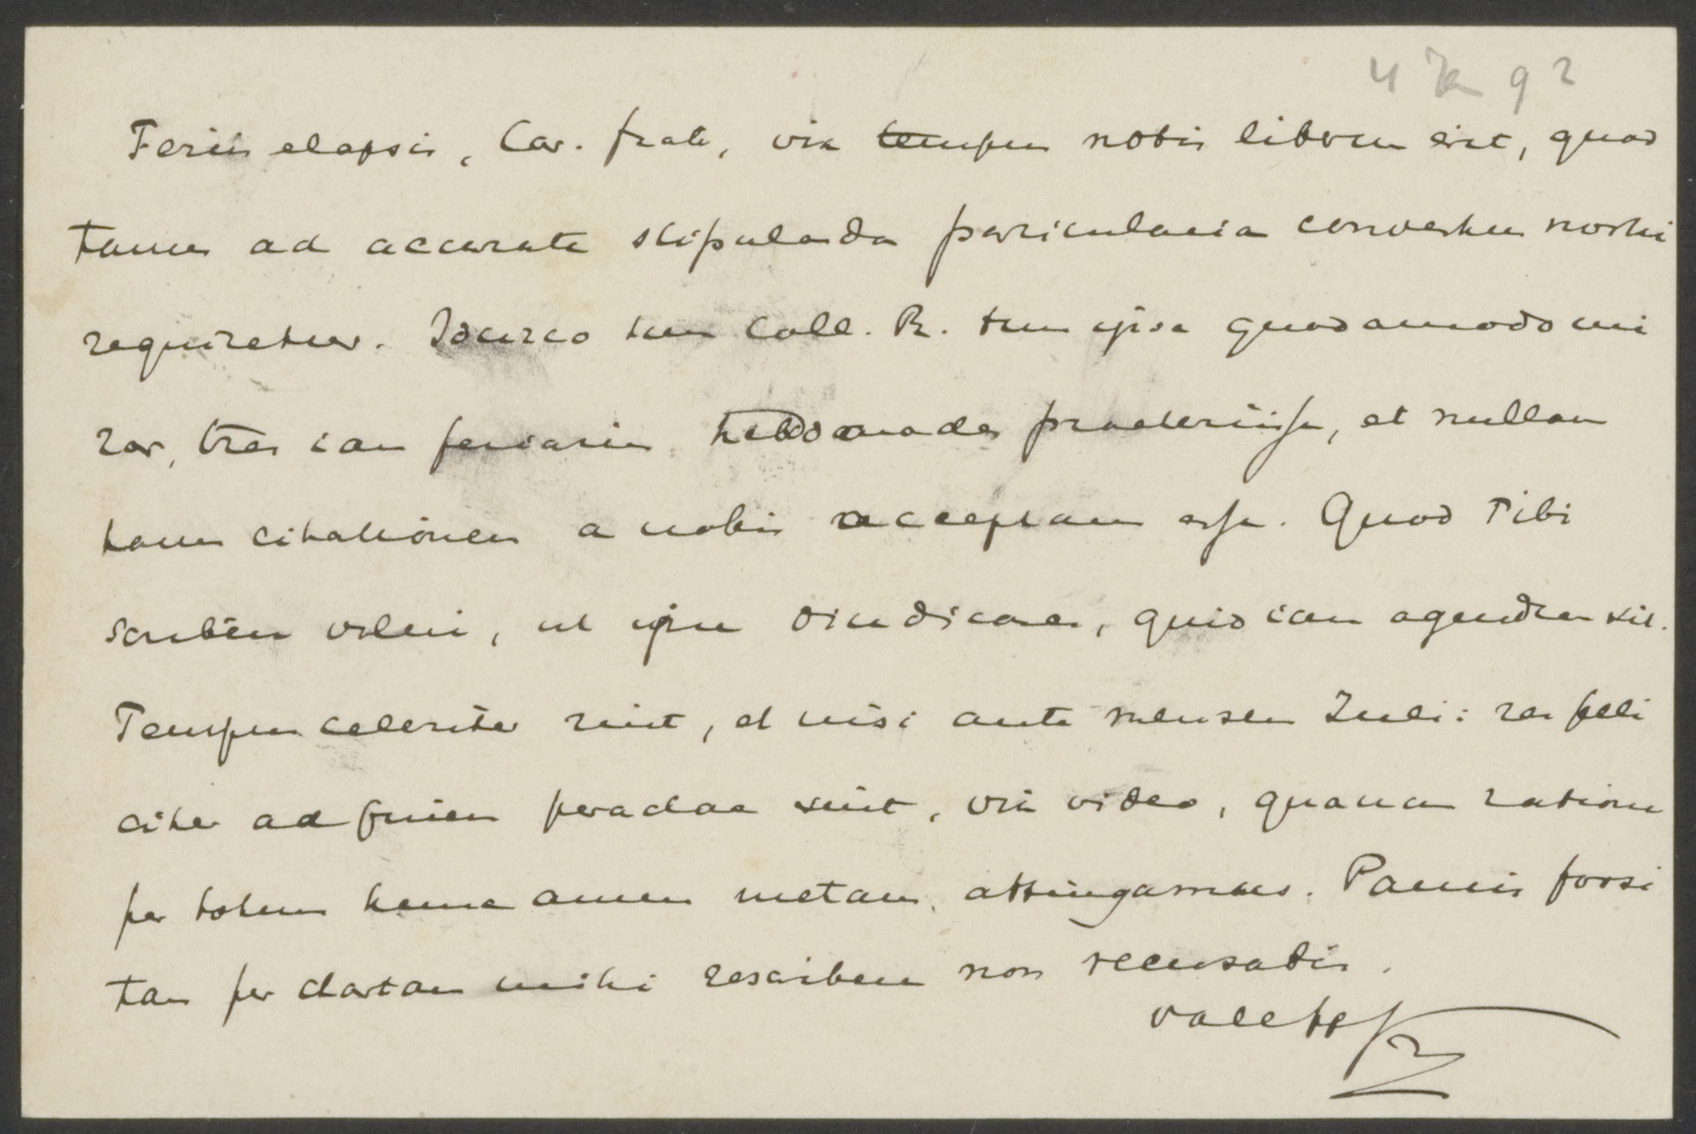 4 92
Feriis elapsis, Car. frater, vix tempus nobis liberum erit, quod
tamen ad accurate stipulanda particularia conventus nostri
requiretur. Idcirco tum Coll. R. tum ipse quodammodo mi
ror, tres iam feriarum hebdomades praeteriisse, et nullam
tam citationem a nobis acceptam esse. Quod Tibi
scribere volui, ut ipse diudicares, quid iam agendum sit.
Tempus celeriter ruit, et nisi ante mensem Julii res feli
citer ad finem peractae sint, vix video, quanam ratione
per totum hunc annum metam attingamus. Paucis forsi
tan per chartam mihi rescribere non recusabis.
Vale